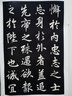 懈於內忠志之士
忘身於外者蓋追
先帝之殊遇欲報
之於陛下也誠宜